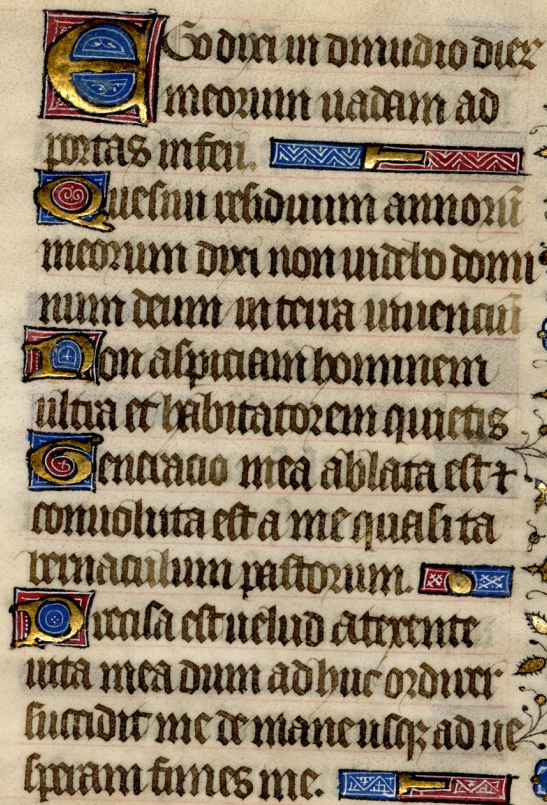 Ego dixi in dimidio dier
meorum uadam ad
portas inferi.
Quesiui residuum annorū
meorum dixi non uidebo domi
num deum in terra uiuenciū
Non aspiciam hominem
ultra et habitatorem quietis
Generacio mea ablata est ⁊
conuoluta est a me quasi ta
bernaculum pastorum.
Precisa est uelud a texente
uita mea dum adhuc ordirer
succidit me de mane usqꝫ ad ue
speram finies me.